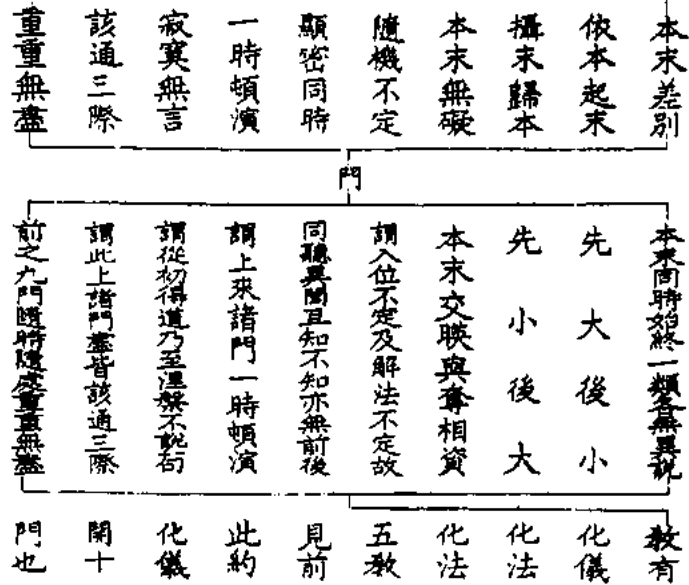 本末差別
依本起末
攝末歸本
本末無礙
隨機不定
顯密同時
一時頓演
寂寞無言
該通三際
重重無盡
門
本末同時始終一類各無異說
先大後小
先小後大
本末交映與奪相資
謂入位不定及解法不定故
同聽異聞互知不知亦無前後
謂上來諸門一時頓演
謂從初得道乃至涅槃不說句
謂此上諸門盡皆該通三際
前之九門隨時隨處重重無盡
教有
化儀
化法
化法
五教
見前
此約
化儀
開十
門也